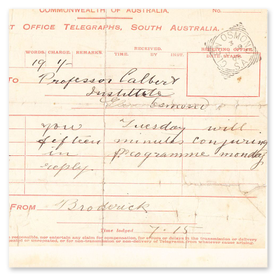 COMMONWEALTH OF AUSTRALIA.
ST OFFICE TELEGRAPHS, SOUTH AUSTRALIA.
WORDS. CHARGE. REMARKS. RECEIVED.
TIME. BY FROM
RECEIVING OFFICE
DATE STAMP.
OSMO
S.A
19 4/-
TO Professor Calbert
Institute
Osmond
you Tuesday will
fifteen minutes conjuring
in programme monday
reply.
FROM Broderick
Time lodged 7.15